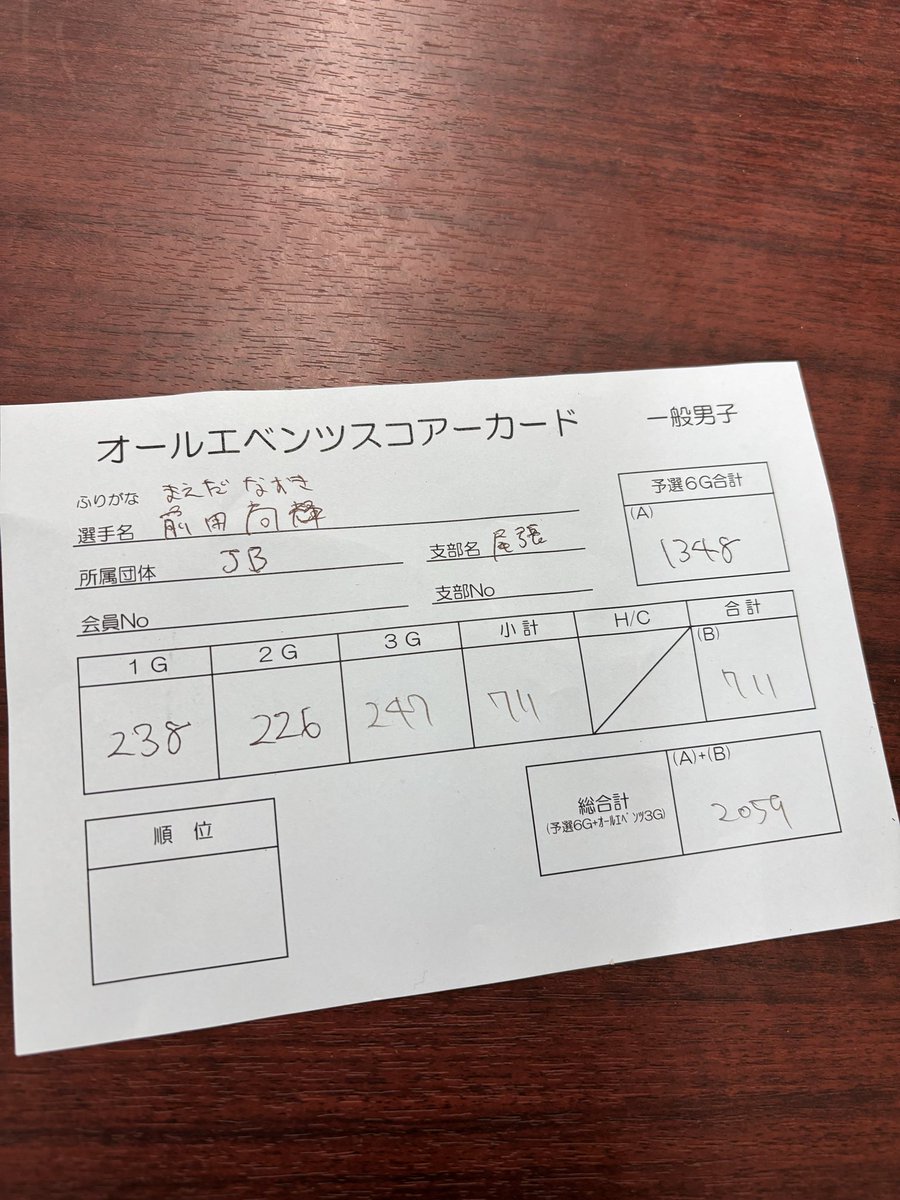 オールエベンツスコアーカード
一般男子
ふりがな まえだ なおき
選手名 前田 尚輝
所属団体 JB
支部名 尾張
会員No
支部No
予選6G合計
(A)
1348
1G 2G 3G 小計 H/C 合計
(B)
238 226 247 711 711
順位
総合計
(予選6G+オールエベンツ3G)
(A)+(B)
2059